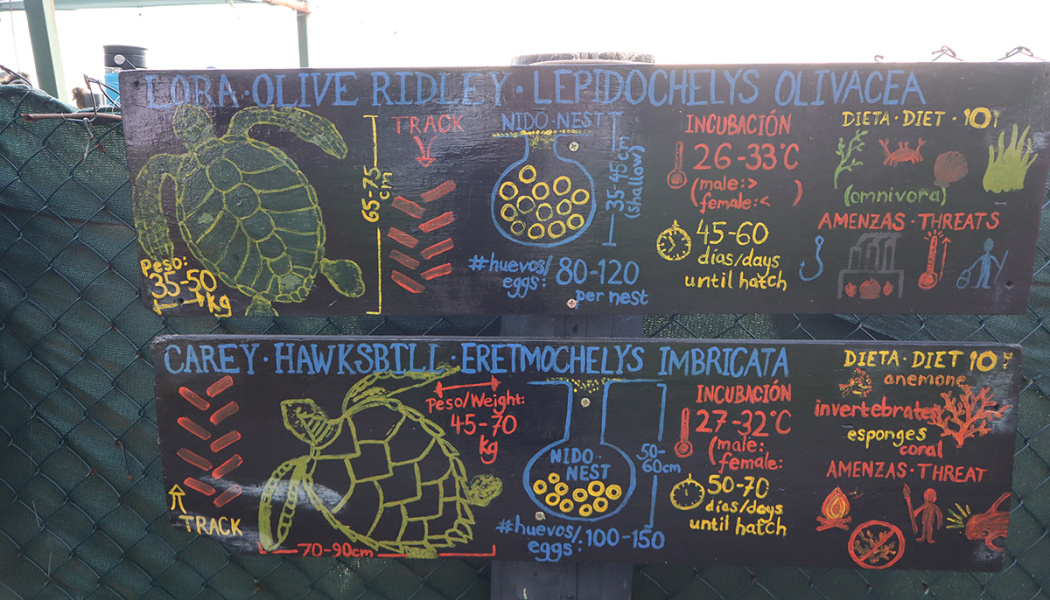 LORA · OLIVE RIDLEY · LEPIDOCHELYS OLIVACEA
Peso:
35-50
kg
65-75
cm
TRACK
NIDO · NEST
35-45 cm
(shallow)
#huevos/
eggs: 80-120
per nest
INCUBACIÓN
26-33°C
(male:>
female:< )
45-60
dias/days
until hatch
DIETA · DIET · 10!
(omnivora)
AMENZAS · THREATS
CAREY · HAWKSBILL · ERETMOCHELYS IMBRICATA
TRACK
70-90cm
Peso/Weight:
45-70
kg
NIDO ·
NEST
50-
60cm
#huevos/
eggs: 100-150
INCUBACIÓN
27-32°C
(male:,
female:
50-70
dias/days
until hatch
DIETA · DIET 10
anemone
invertebrates
esponges
coral
AMENZAS · THREAT